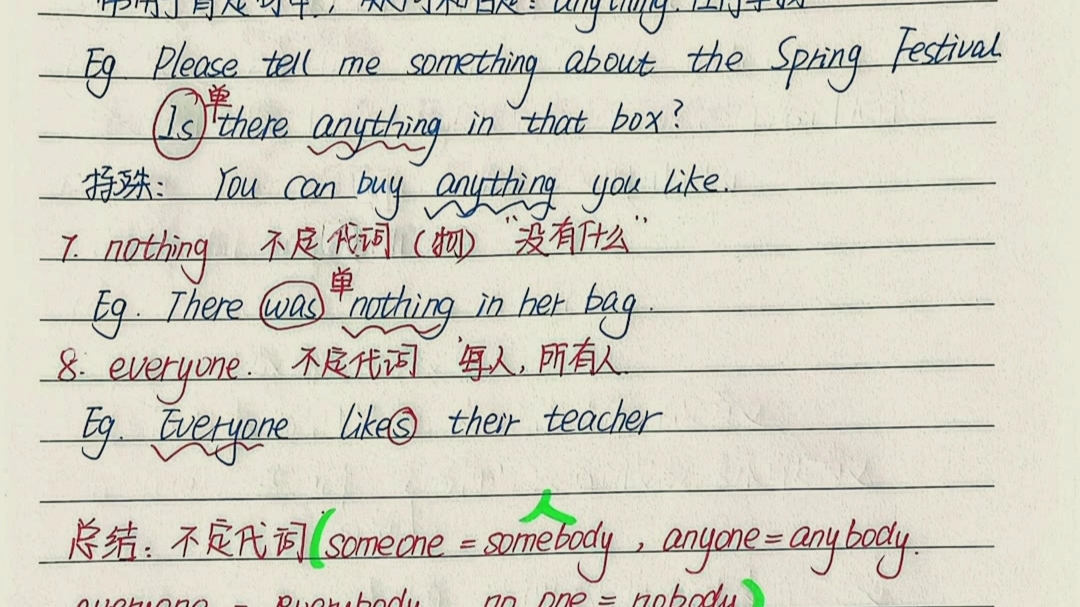 Eg. Please tell me something about the Spring Festival
Is 单 there anything in that box?
特殊: You can buy anything you like.
7. nothing 不定代词 (物) "没有什么"
Eg. There was 单 nothing in her bag.
8. everyone. 不定代词 每人, 所有人.
Eg. Everyone likes their teacher
人
总结: 不定代词 (someone = somebody, anyone = anybody.
everyone = everybody no one = nobody)